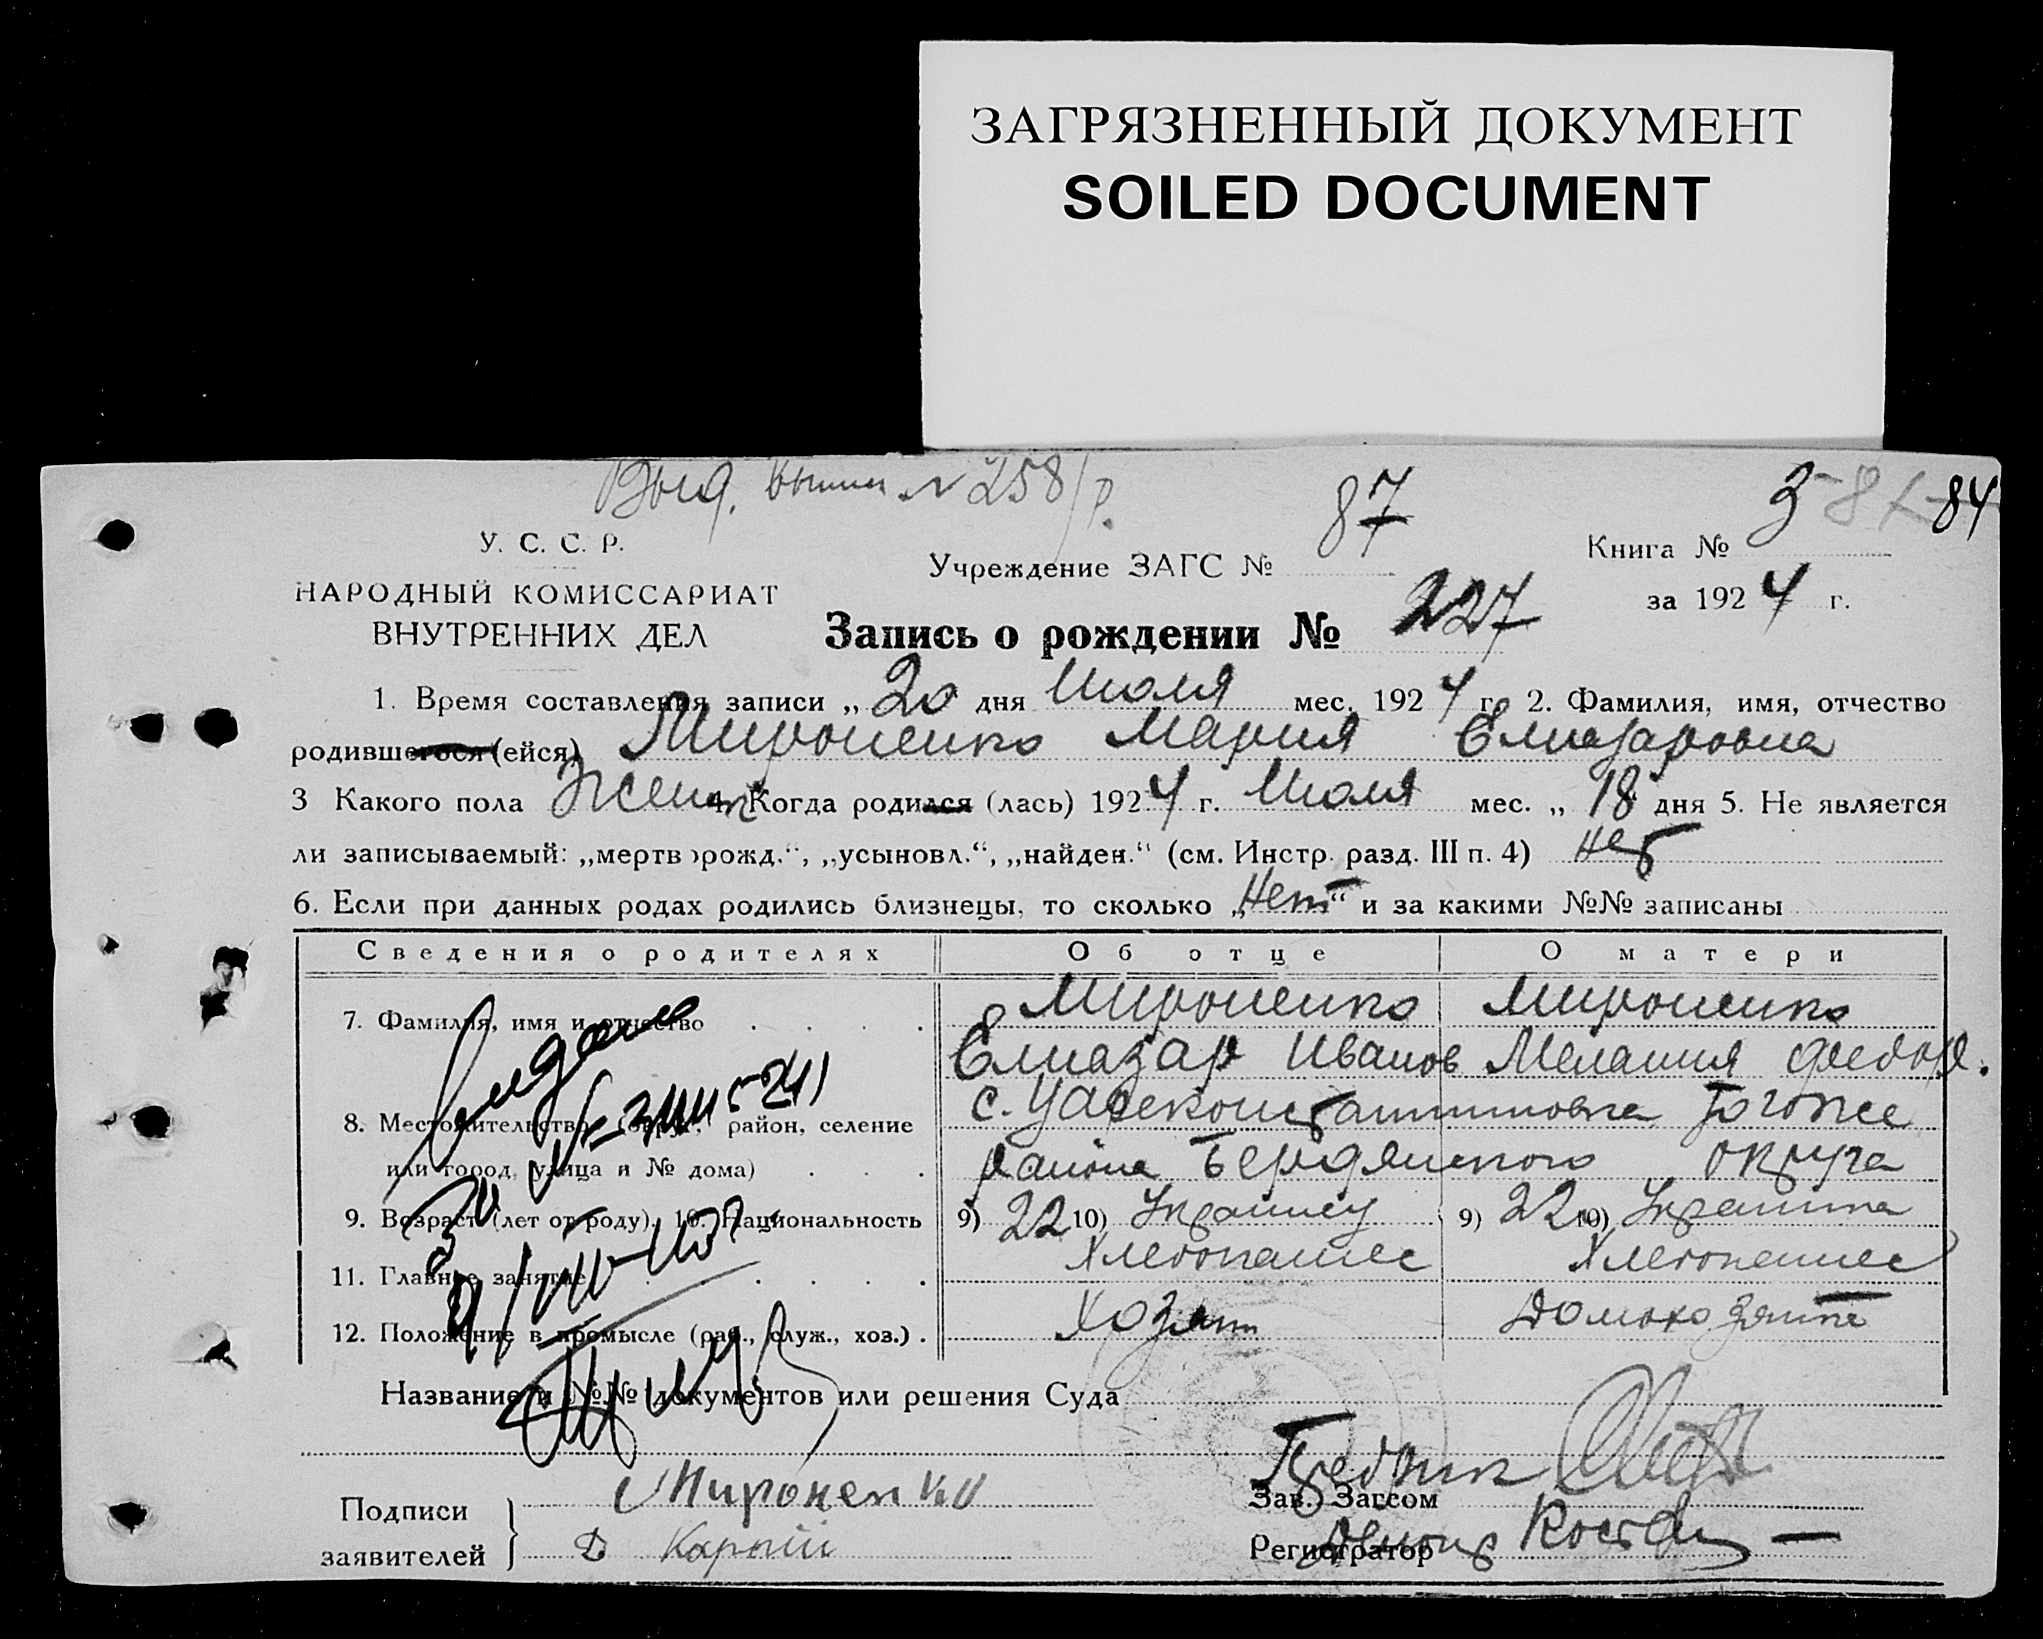 ЗАГРЯЗНЕННЫЙ ДОКУМЕНТ
SOILED DOCUMENT
Выд. выпись № 258/р.
87
3 84
У. С. С. Р.
Учреждение ЗАГС №
Книга №
НАРОДНЫЙ КОМИССАРИАТ
за 1924 г.
ВНУТРЕННИХ ДЕЛ
Запись о рождении № 227
1. Время составления записи „ 20 дня Июля мес. 1924 г. 2. Фамилия, имя, отчество
родившегося (ейся) Мироненко Мария Елиазаровна
3 Какого пола Женск 4. Когда родился (лась) 1924 г. Июля мес. „ 18 дня 5. Не является
ли записываемый: „мертворожд.“, „усыновл.“, „найден.“ (см. Инстр. разд. III п. 4) нет
6. Если при данных родах родились близнецы, то сколько „Нет“ и за какими №№ записаны
Сведения о родителях Об отце О матери
7. Фамилия, имя и отчество . . . . Мироненко Мироненко
Елиазар Иванов Мелания Федор.
8. Местожительство (округ, район, селение с. Цареконстантиновка того же
или город, улица и № дома) . . . района Бердянского округа
9. Возраст (лет от роду). 10. Национальность 9) 22 10) Украинец 9) 22 10) Украинка
11. Главное занятие . . . . . . Хлебопашес Хлебопашес
12. Положение в промысле (раб., служ., хоз.) . Хозяин Домохозяйка
Название и №№ документов или решения Суда
Подписи
заявителей
Мироненко
Зав. Загсом
Регистратор